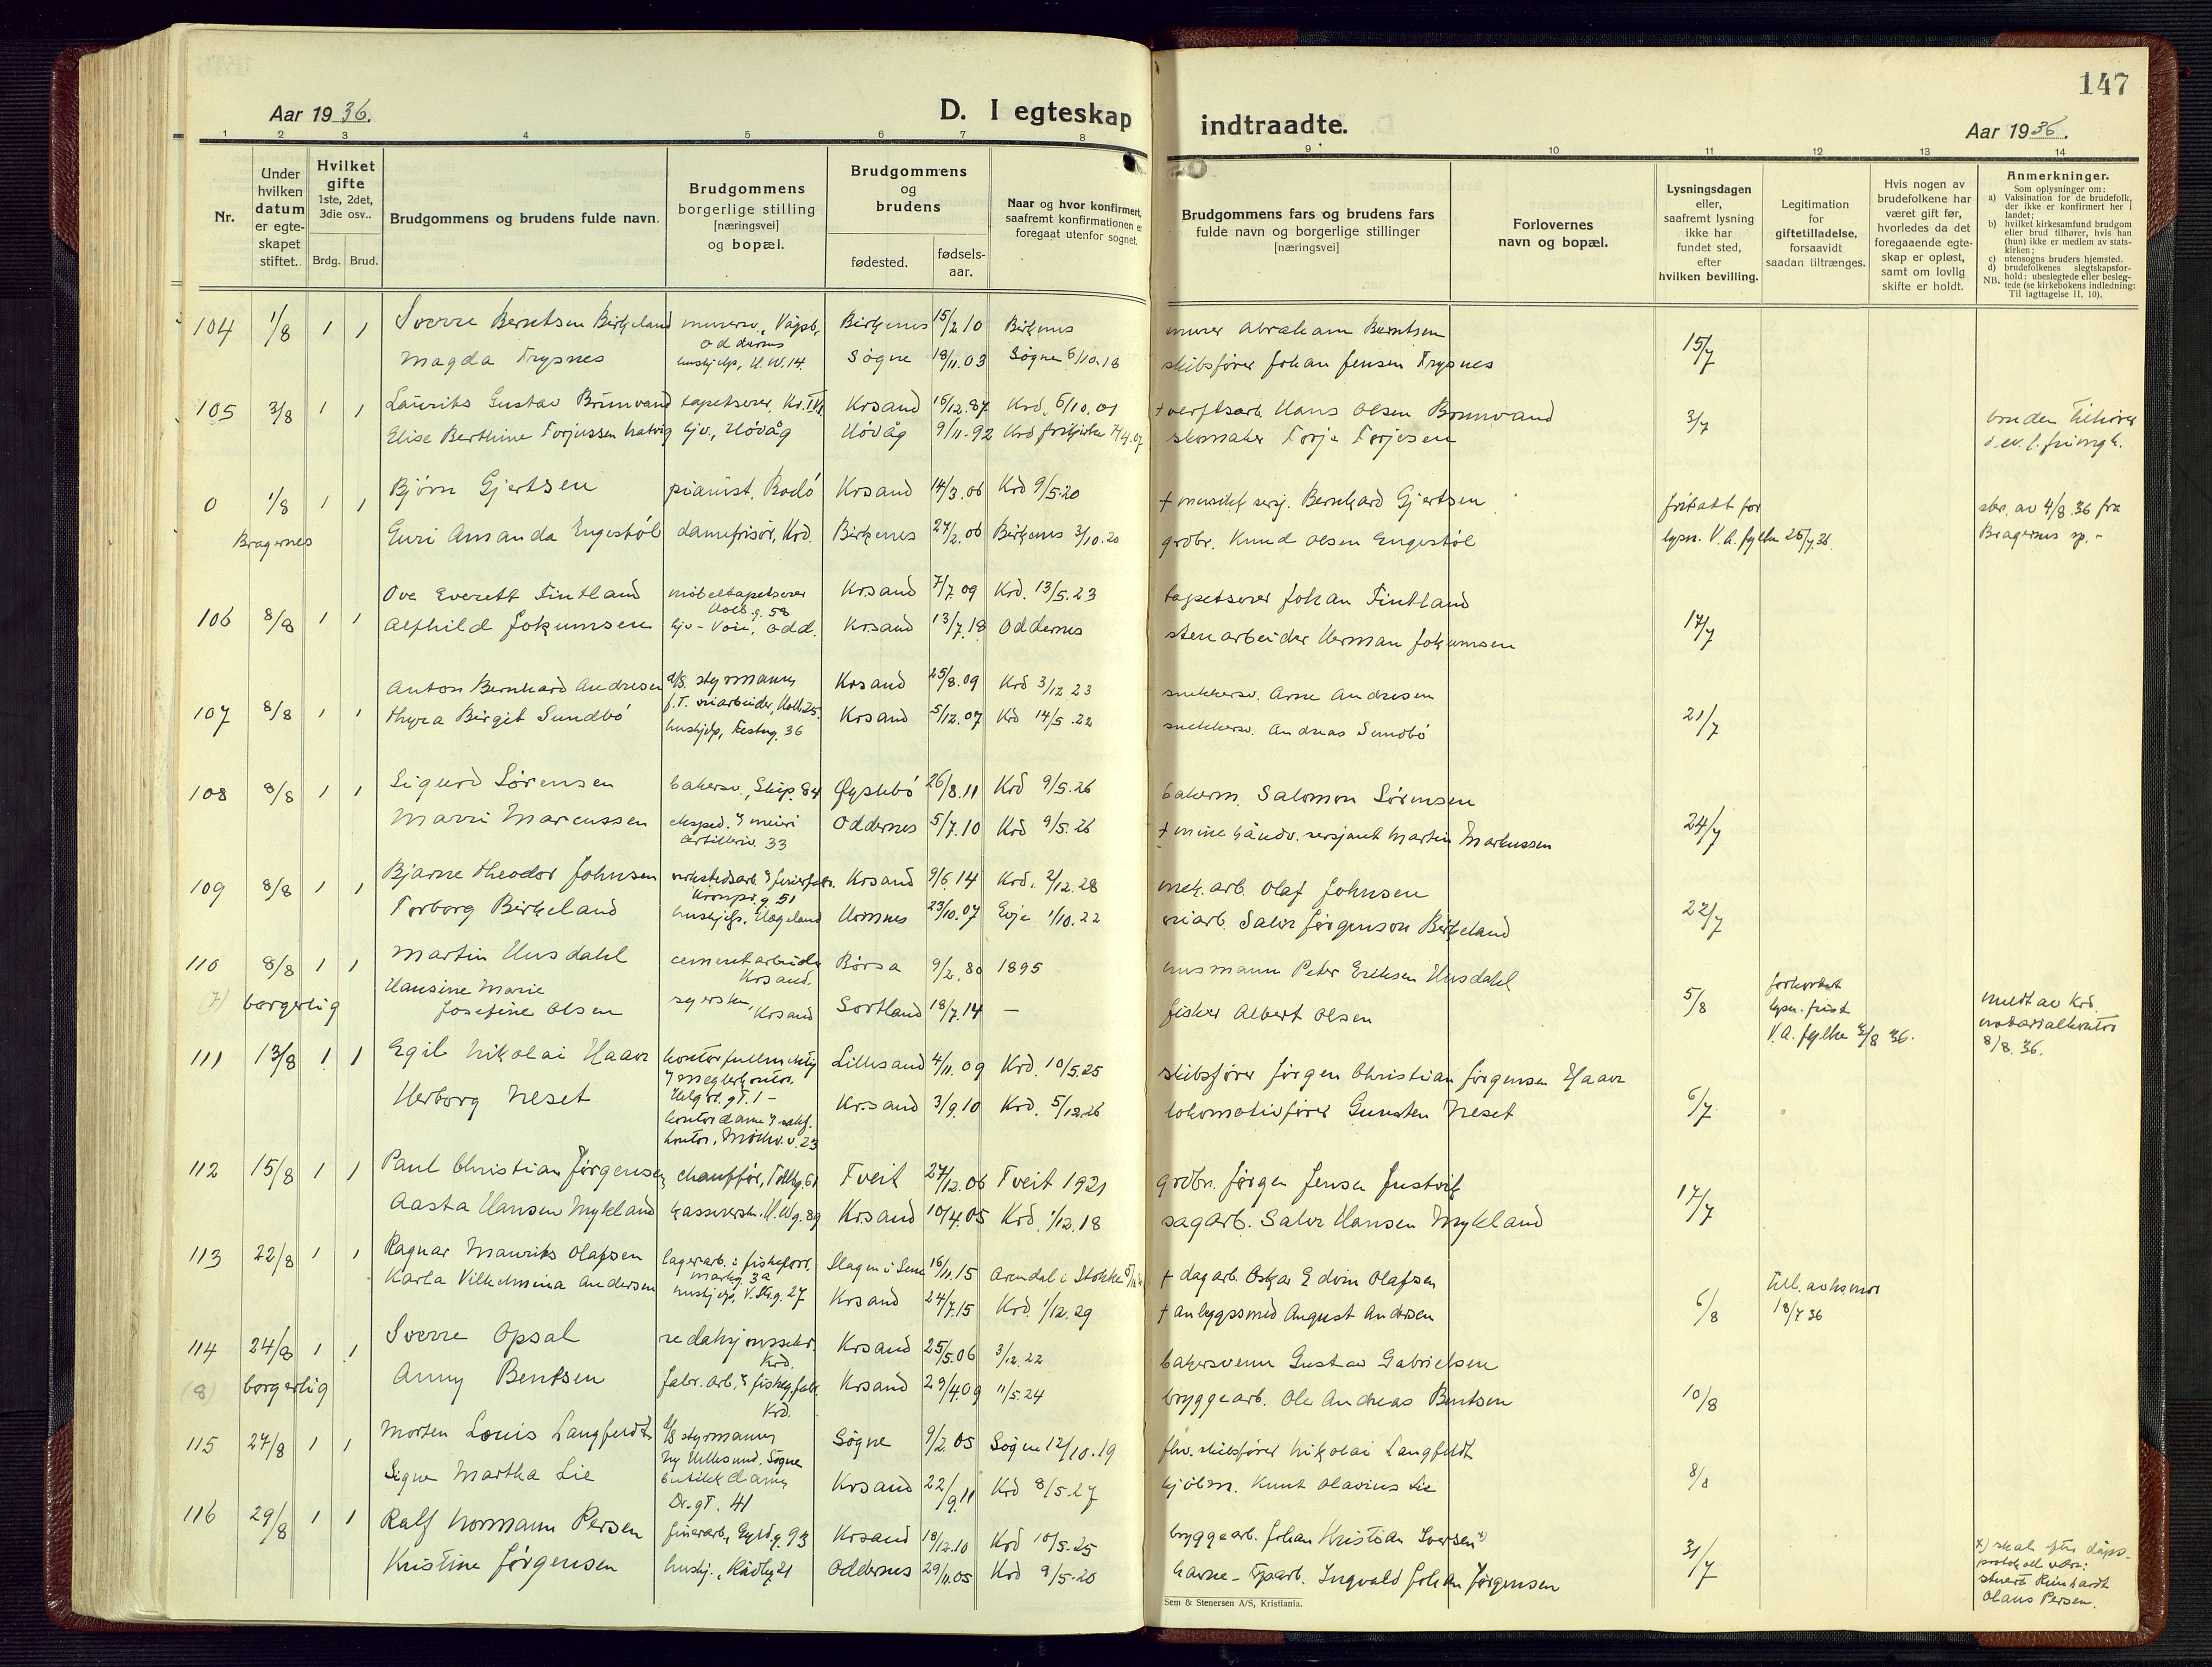 147
Aar 1936.
D. I egteskap indtraadte.
Aar 1936.
1 2 3 4 5 6 7 8 9 10 11 12 13 14
Nr.
Under hvilken datum er egteskapet stiftet.
Hvilket gifte 1ste, 2det, 3die osv..
Brdg. Brud.
Brudgommens og brudens fulde navn.
Brudgommens borgerlige stilling [næringsvei] og bopæl.
Brudgommens og brudens
fødested.
fødselsaar.
Naar og hvor konfirmert, saafremt konfirmationen er foregaat utenfor sognet.
Brudgommens fars og brudens fars fulde navn og borgerlige stillinger [næringsvei]
Forlovernes navn og bopæl.
Lysningsdagen eller, saafremt lysning ikke har fundet sted, efter hvilken bevilling.
Legitimation for giftetilladelse, forsaavidt saadan tiltrænges.
Hvis nogen av brudefolkene har været gift før, hvorledes da det foregaaende egteskap er opløst, samt om lovlig skifte er holdt.
Anmerkninger.
Som oplysninger om:
a) Vaksination for de brudefolk, der ikke er konfirmert her i landet;
b) hvilket kirkesamfund brudgom eller brud tilhører, hvis han (hun) ikke er medlem av statskirken;
c) utensogns bruders hjemsted.
d) brudefolkenes slegtskapsforhold: ubeslegtede eller beslegtede (se kirkebokens indledning: NB. Til iagttagelse II. 10).
104 1/8 1 1 Sverre Berntsen Birkeland murersv., Vågsb., Oddernes Birkenes 15/2 10 Birkenes murer Abraham Berntsen 15/7
Magda Trysnes hushjelp, H.W.14. Søgne 18/11.03 Søgne 6/10.18 skibsfører Johan Jensen Trysnes
105 3/8 1 1 Lauritz Gustav Brunvand tapetserer, Kr.sand 15/12.87 Krd. 6/10.01 + verftsarb. Hans Olsen Brunvand 3/7 bruden tilhører
Elise Berthine Torjussen hjv., Høvåg Høvåg 9/11-92 Krd frikirke skomaker Torje Torjesen d. ev. l. frimgh.
0 1/8 1 1 Bjørn Gjertsen pianist. Bodø Krsand 14/3.06 Krd 9/5-20 + musikk serj. Bernhard Gjertsen fritatt for skr. av 4/8.36 fra
Bragernes Guri Amanda Engestøl damefrisør, Krd. Birkenes 27/2.06 Birkenes 3/10.20 grdbr. Knud Olsen Engestøl lysn. V.A. fylke 25/7.36. Bragernes sp.-
106 8/8 1 1 Ove Everett Fintland møbeltapetserer Holb.g. 58 Krsand 7/7 09 Krd. 13/5.23 tapetserer Johan Fintland 17/7
Alfhild Jokumsen hjv - Voie, Odd. Krsand 13/7.18 Oddernes stenarbeider Herman Jokumsen
107 8/8 1 1 Anton Bernhard Andresen styrmann f.T. veiarbeider, Holb.25. Krsand 25/8.09 Krd 3/12 23 snekkersv. Arne Andresen 21/7
Thyra Birgit Sundbø hushjelp, Festng. 36 Krsand 5/12.07 Krd 14/5.22 snekkersv. Andreas Sundbø
108 8/8 1 1 Sigurd Sørensen bakersv., Skip. 84 Øyslebø 26/8.11 Krd 9/5.26 bakerm. Salomon Sørensen 24/7
Marri Marcussen eksped. i meieri Artilleriv. 33 Oddernes 5/7.10 Krd 9/5.26 + mine håndv. sersjant Martin Markussen
109 8/8 1 1 Bjarne Theodor Johnsen verkstedsarb. Kronpr.g. 51 Krsand 9/6.14 Krd. 2/12.28 mek.arb. Olaf Johnsen 22/7
Torborg Birkeland hushjelp, Vågsland Hornnes 23/10.07 Evje 1/10.22 veiarb. Salve Jørgenson Birkeland
110 8/8 1 1 Martin Husdahl cementarbeider Krsand. Børsa 9/2.80 1895 husmann Peter Eriksen Husdahl 5/8 forkortet
(7) borgerlig Hansine Marie Josefine Olsen syerske, Krsand Sortland 18/7.14 — fisker Albert Olsen lysn. frist V.A. fylke 3/8 36. meldt av Krd. notarialkontor 8/8.36.
111 13/8 1 1 Egil Nikolai Haave kontorfullmektig i meglerkontor. Lillesand 4/11.09 Krd. 10/5.25 skibsfører Jørgen Christian Jørgensen Haave 6/7
Herborg Neset kontordame kontor. Krsand 3/9.10 Krd. 5/12.26 lokomotivfører Gunsten Neset
112 15/8 1 1 Paul Christian Jørgensen chauffør, Tollbg. 61 Tveit 27/12.06 Tveit 1921 grdbr. Jørgen Jensen Justvik 17/7
Aasta Hansen Mykland kassererske. H.Wg.89 Krsand 10/4.05 Krd. 1/12.18 sagarb. Salve Hansen Mykland
113 22/8 1 1 Ragnar Mauritz Olafsen lagerarb. i fiskeforr. Markg. 3a Slagen i Sem 16/11.15 Arendal i Stokke + dagarb. Oskar Edvin Olafsen 6/8
Karla Vilhelmina Andersen hushjelp, V.Str.g. 27 Krsand 24/7.15 Krd. 1/12.29 + anleggssmed August Andersen 18/7 36
114 24/8 1 1 Sverre Opsal redaksjonssekr. Krd. Krsand 25/5.06 3/12.22 bakersvenn Gustav Gabrielsen 10/8
(8) borgerlig Anny Bentsen fabr.arb. i fiskeg.fabr. Krd. Krsand 29/4.09 11/5.24 bryggearb. Ole Andreas Bentsen
115 27/8 1 1 Morten Louis Langfeldt styrmann Ny Hellesund. Søgne Søgne 9/2.05 Søgne 12/10.19 fhv. skibsfører Nikolai Langfeldt 8/8
Signe Martha Lie butikkdame Dr.gt. 41 Krsand 22/9 11 Krd 8/5.27 kjøbm. Knut Olavius Lie
116 29/8 1 1 Ralf Normann Persen finerarb., Gyld.g. 93 Krsand 18/12.10 Krd 10/5.25 bryggearb. Johan Kristian Iversen x) 31/7 x) skal efter dåpsprotokoll være: stuert Reinhardt Olaus Persen.
Kristine Jørgensen hushj., Rådhg. 21 Oddernes 29/11.05 Krd 9/5.20 havne-Fyrarb. Ingvald Johan Jørgensen
Sem & Stenersen A/S, Kristiania.